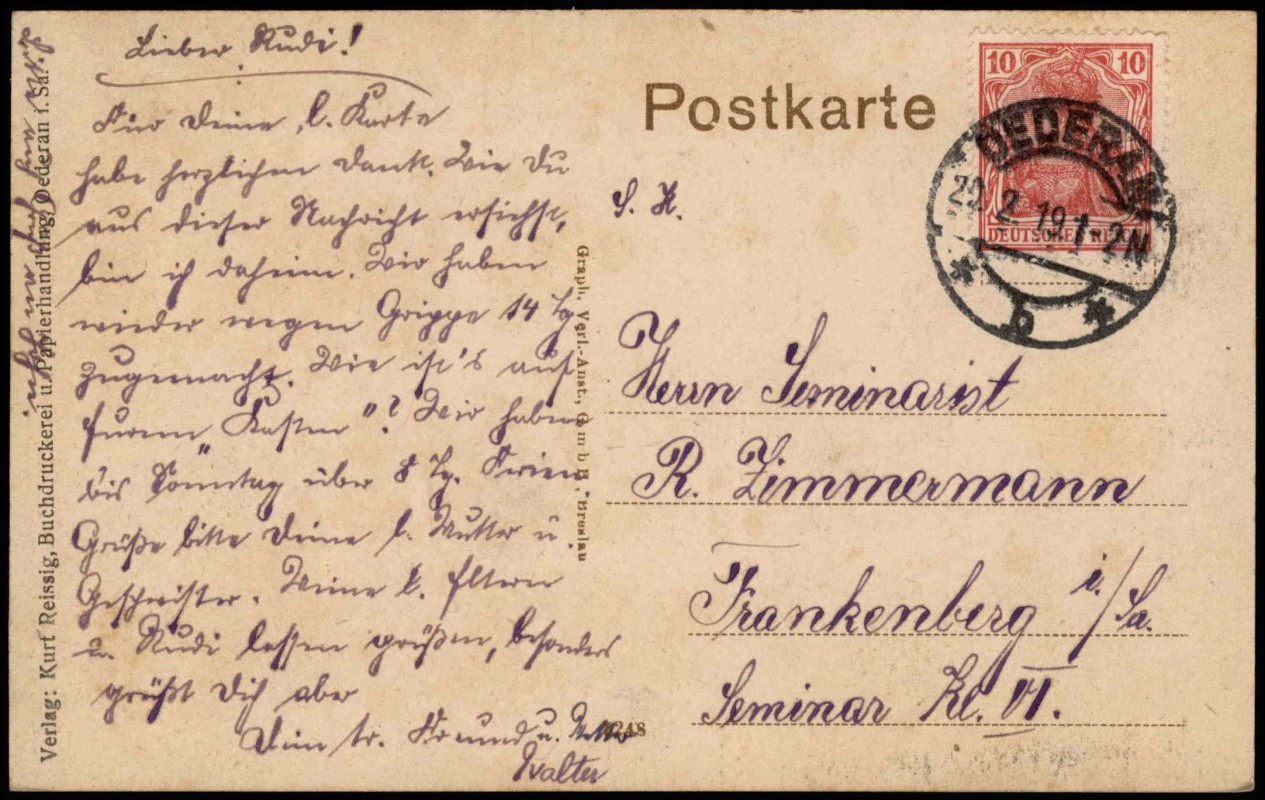 Lieber Rudi!
Für Deine l. Karte
habe herzlichen Dank. Wie Du
aus dieser Nachricht ersiehst,
bin ich daheim. Wir haben
wieder wegen Grippe 14 Tg.
zugemacht. Wie ist's auf
Eurem „Kasten“? Wir haben
bis Sonntag über 8 Tg. Ferien
Grüße bitte Deine l. Mutter u.
Geschwister. Meine l. Eltern
u. Rudi lassen grüßen, besonders
grüßt Dich aber
Dein tr. Freund u. Vetter
Walter
Verlag: Kurt Reissig, Buchdruckerei u. Papierhandlung, Oederan i. Sa.
Graph. Verl.-Anst., G m b H, Breslau
4248
Postkarte
10 10
DEUTSCHES REICH
OEDERAN
22.2.19.1-2N
b
S. H.
Herrn Seminarist
R. Zimmermann
Frankenberg i./Sa.
Seminar Kl. VI.